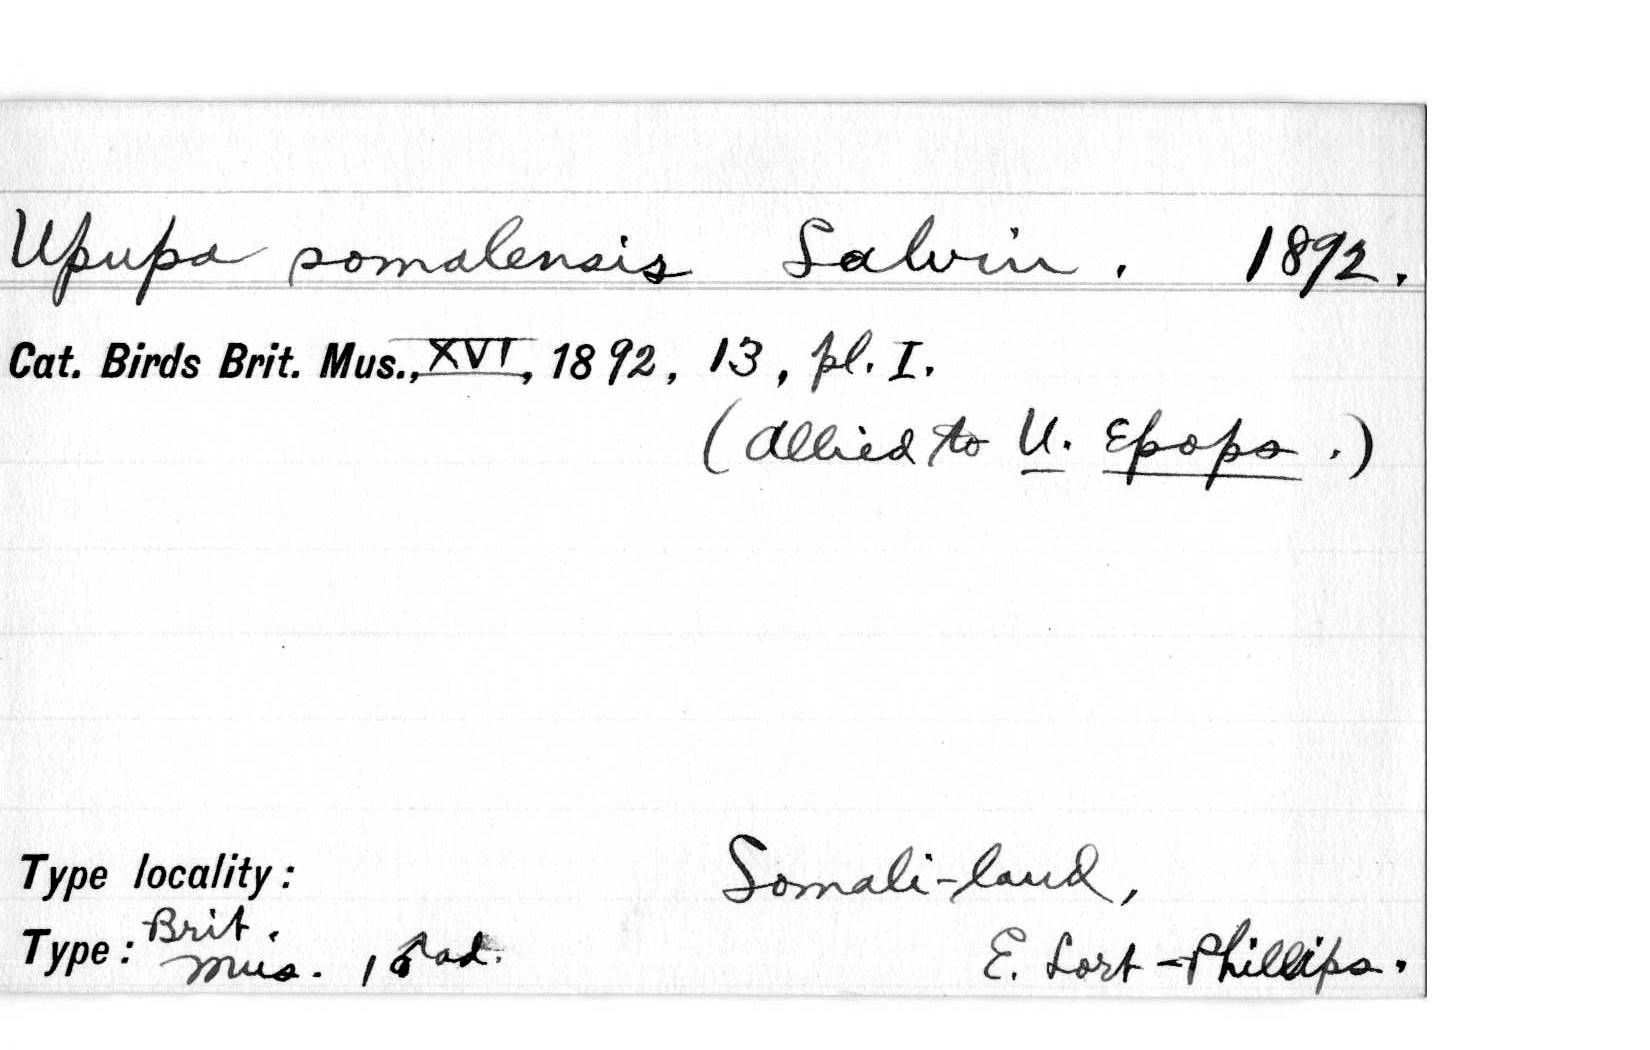 Upupa somalensis Salvin. 1892.
Cat. Birds Brit. Mus., XVI, 1892, 13, pl. I.
(allied to U. Epops.)
Type locality: Somali-land,
Type: Brit. Mus. 1 ♂ ad. E. Lort-Phillips.